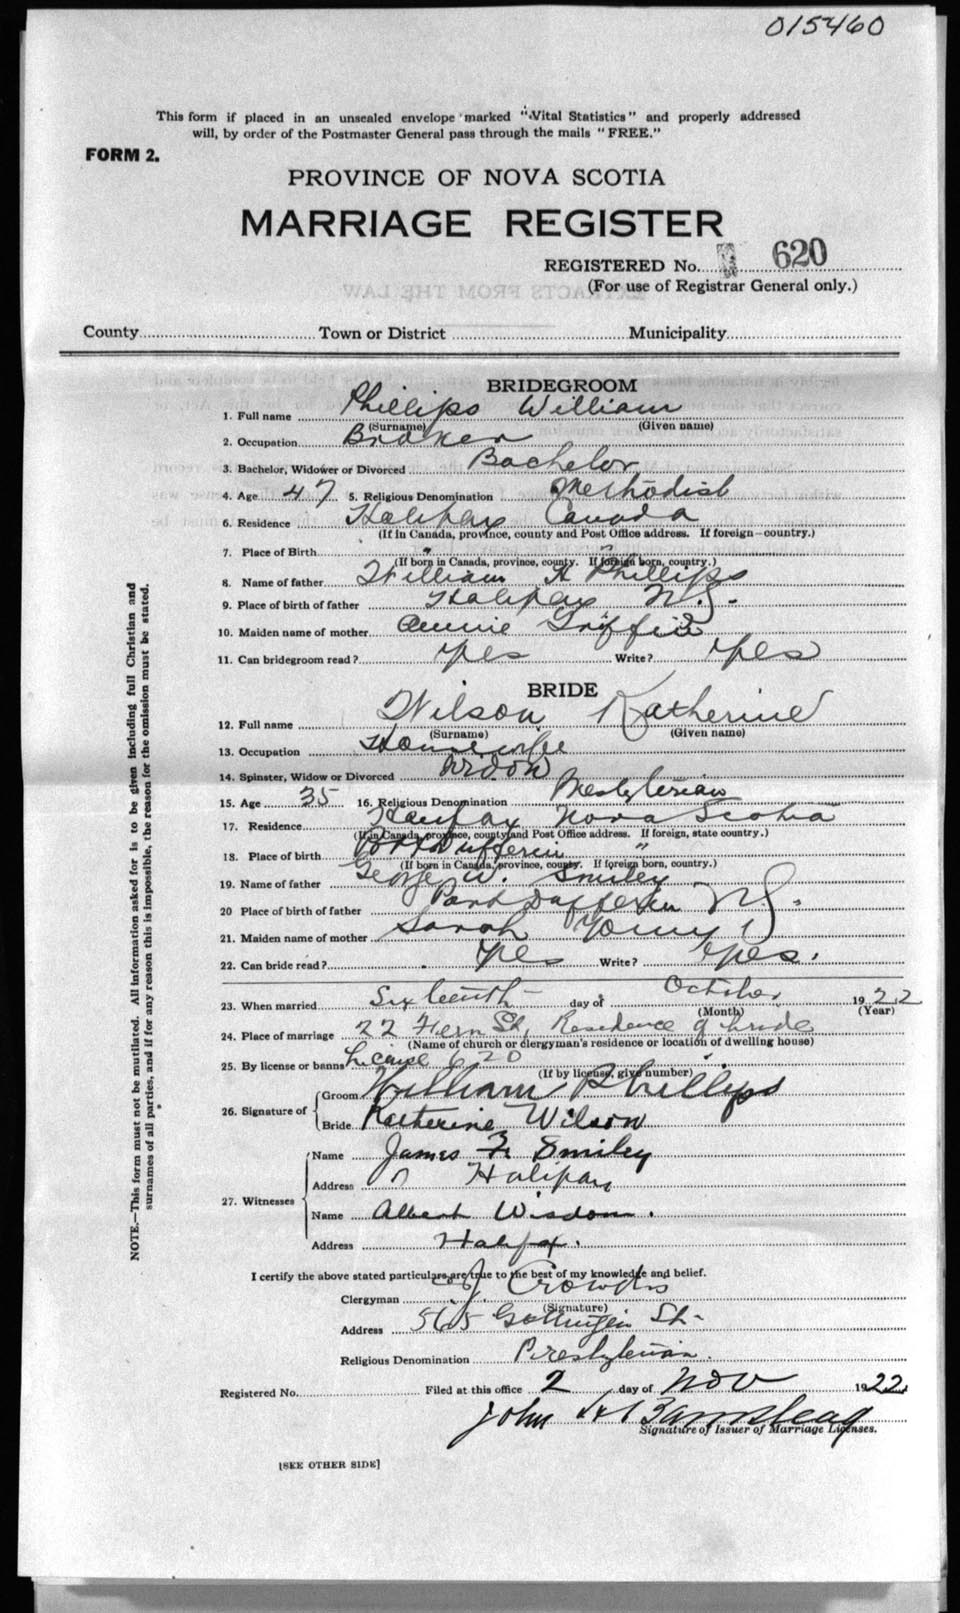 015460
This form if placed in an unsealed envelope marked "Vital Statistics" and properly addressed
will, by order of the Postmaster General pass through the mails "FREE."
FORM 2.
PROVINCE OF NOVA SCOTIA
MARRIAGE REGISTER
REGISTERED No. 620
(For use of Registrar General only.)
County Town or District Municipality
BRIDEGROOM
1. Full name Phillips William
(Surname) (Given name)
2. Occupation Broker
3. Bachelor, Widower or Divorced Bachelor
4. Age 47 5. Religious Denomination Methodist
6. Residence Halifax Canada
(If in Canada, province, county and Post Office address. If foreign—country.)
7. Place of Birth " "
(If born in Canada, province, county. If foreign born, country.)
8. Name of father William H Phillips
9. Place of birth of father Halifax N.S.
10. Maiden name of mother Annie Griffin
11. Can bridegroom read? yes Write? yes
BRIDE
12. Full name Wilson Katherine
(Surname) (Given name)
13. Occupation Housewife
14. Spinster, Widow or Divorced Widow
15. Age 35 16. Religious Denomination Presbyterian
17. Residence Halifax Nova Scotia
(If in Canada, province, county and Post Office address. If foreign, state country.)
18. Place of birth Port Dufferin "
(If born in Canada, province, county. If foreign born, country.)
19. Name of father George W. Smiley
20 Place of birth of father Port Dufferin N S.
21. Maiden name of mother Sarah Young
22. Can bride read? Yes Write? Yes.
23. When married Sixteenth day of October 1922
(Month) (Year)
24. Place of marriage 22 Fern St, Residence of bride
(Name of church or clergyman's residence or location of dwelling house)
25. By license or banns License 620
(If by license, give number)
26. Signature of Groom William Phillips
Bride Katherine Wilson
27. Witnesses Name James F. Smiley
Address Halifax
Name Albert Wisdom.
Address Halifax.
I certify the above stated particulars are true to the best of my knowledge and belief.
Clergyman J. Crowdis
(Signature)
Address 565 Gottingen St-
Religious Denomination Presbyterian.
Registered No. Filed at this office 2 day of Nov 1922
John H Barnstead
Signature of Issuer of Marriage Licenses.
[SEE OTHER SIDE]
NOTE.—This form must not be mutilated. All information asked for is to be given including full Christian and
surnames of all parties, and if for any reason this is impossible, the reason for the omission must be stated.